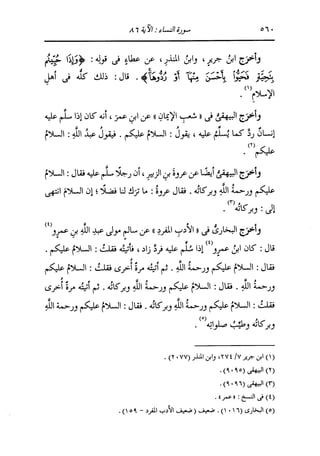 ٥٦٠ سورة النساء : الآية ٨٦
وأخرج ابنُ جريرٍ ، وابنُ المنذرِ ، عن عطاءٍ فى قولِه : ﴿وَإِذَا حُيِّيتُم
بِتَحِيَّةٍ فَحَيُّوا بِأَحْسَنَ مِنْهَا أَوْ رُدُّوهَا﴾ . قال : ذلك كلُّه فى أهلِ
الإسلامِ (١) .
وأخرج البيهقىُّ فى « شعبِ الإيمانِ » عن ابنِ عمرَ ، أنه كان إذا سلَّم عليه
إنسانٌ ردَّ كما يُسلِّمُ عليه ، يقولُ : السلامُ عليكم . فيقولُ عبدُ اللَّهِ : السلامُ
عليكم (٢) .
وأخرج البيهقىُّ أيضًا عن عروةَ بنِ الزبيرِ ، أن رجلًا سلَّم عليه فقال : السلامُ
عليكم ورحمةُ اللَّهِ وبركاتُه . فقال عروةُ : ما ترَك لنا فضلًا ؛ إن السلامَ انتهى
إلى : وبركاتُه (٣) .
وأخرج البخارىُّ فى « الأدبِ المفردِ » عن سالمٍ مولى عبدِ اللَّهِ بنِ عمرٍو (٤)
قال : كان ابنُ عمرٍو (٤) إذا سُلِّم عليه فردَّ زاد ، فأتيتُه فقلتُ : السلامُ عليكم .
فقال : السلامُ عليكم ورحمةُ اللَّهِ . ثم أتيتُه مرةً أخرى فقلتُ : السلامُ عليكم
ورحمةُ اللَّهِ . فقال : السلامُ عليكم ورحمةُ اللَّهِ وبركاتُه . ثم أتيتُه مرةً أخرى
فقلتُ : السلامُ عليكم ورحمةُ اللَّهِ وبركاتُه . فقال : السلامُ عليكم ورحمةُ اللَّهِ
وبركاتُه وطيِّبُ صلواتِه (٥) .
(١) ابن جرير ٧/ ٢٧٤، وابن المنذر (٢٠٧٧) .
(٢) البيهقى (٩٠٩٥) .
(٣) البيهقى (٩٠٩٦) .
(٤) فى النسخ : « عمر » .
(٥) البخارى (١٠١٦) . ضعيف (ضعيف الأدب المفرد - ١٥٩) .